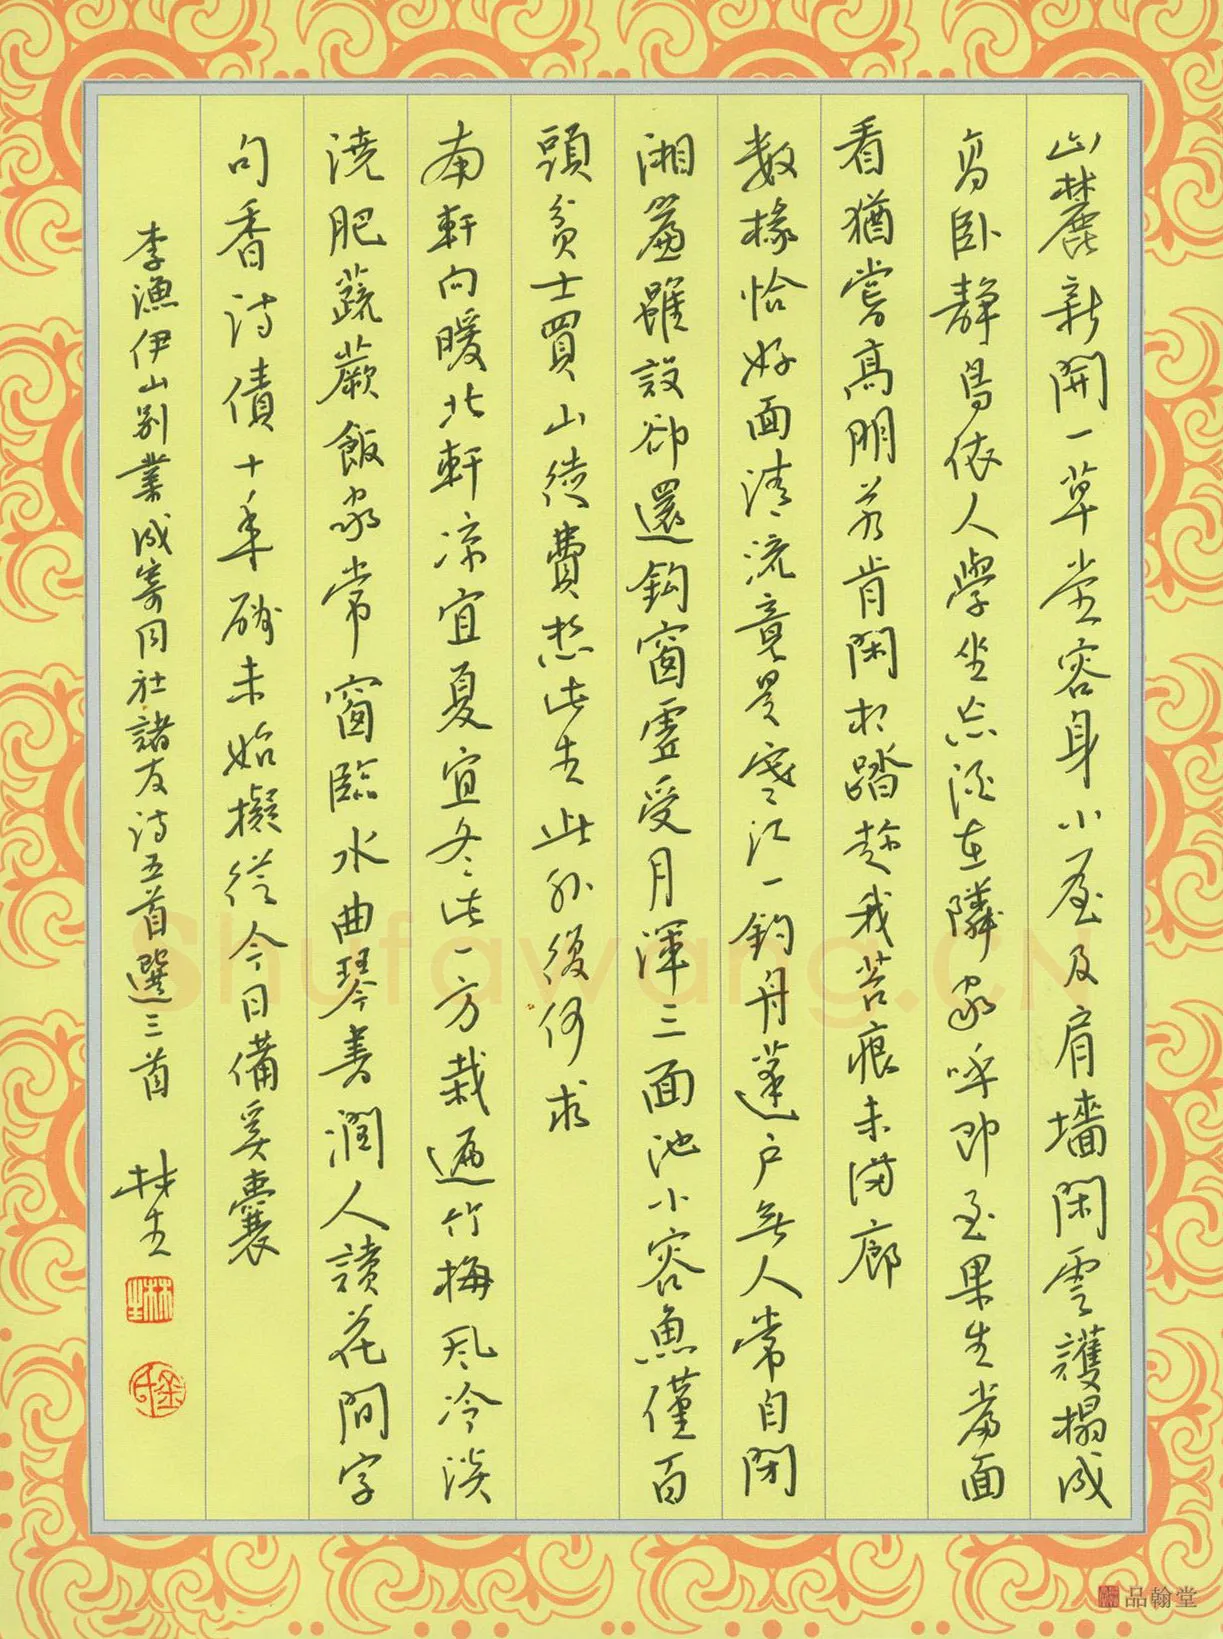 山麓新開一草堂容身小屋及肩墻閑雲護榻成
高卧靜鳥依人學坐忘酒在隣家呼即至果生當面
看猶嘗高朋若肯閑相踏趁我苔痕未满廊
數椽恰好面清流竟是寒江一釣舟蓬户無人常自閉
湘簾雖設卻還鈎窗虛受月渾三面池小容魚僅百
頭貧士買山徒費想此生此外復何求
南軒向暖北軒凉宜夏宜冬此一方栽遍竹梅風冷淡
澆肥蔬蕨飯家常窗臨水曲琴書潤人讀花間字
句香詩債十年酬未始擬從今日備奚囊
李漁伊山别業成寄同社諸友詩五首選三首 林生
Shufawang.CN
品翰堂